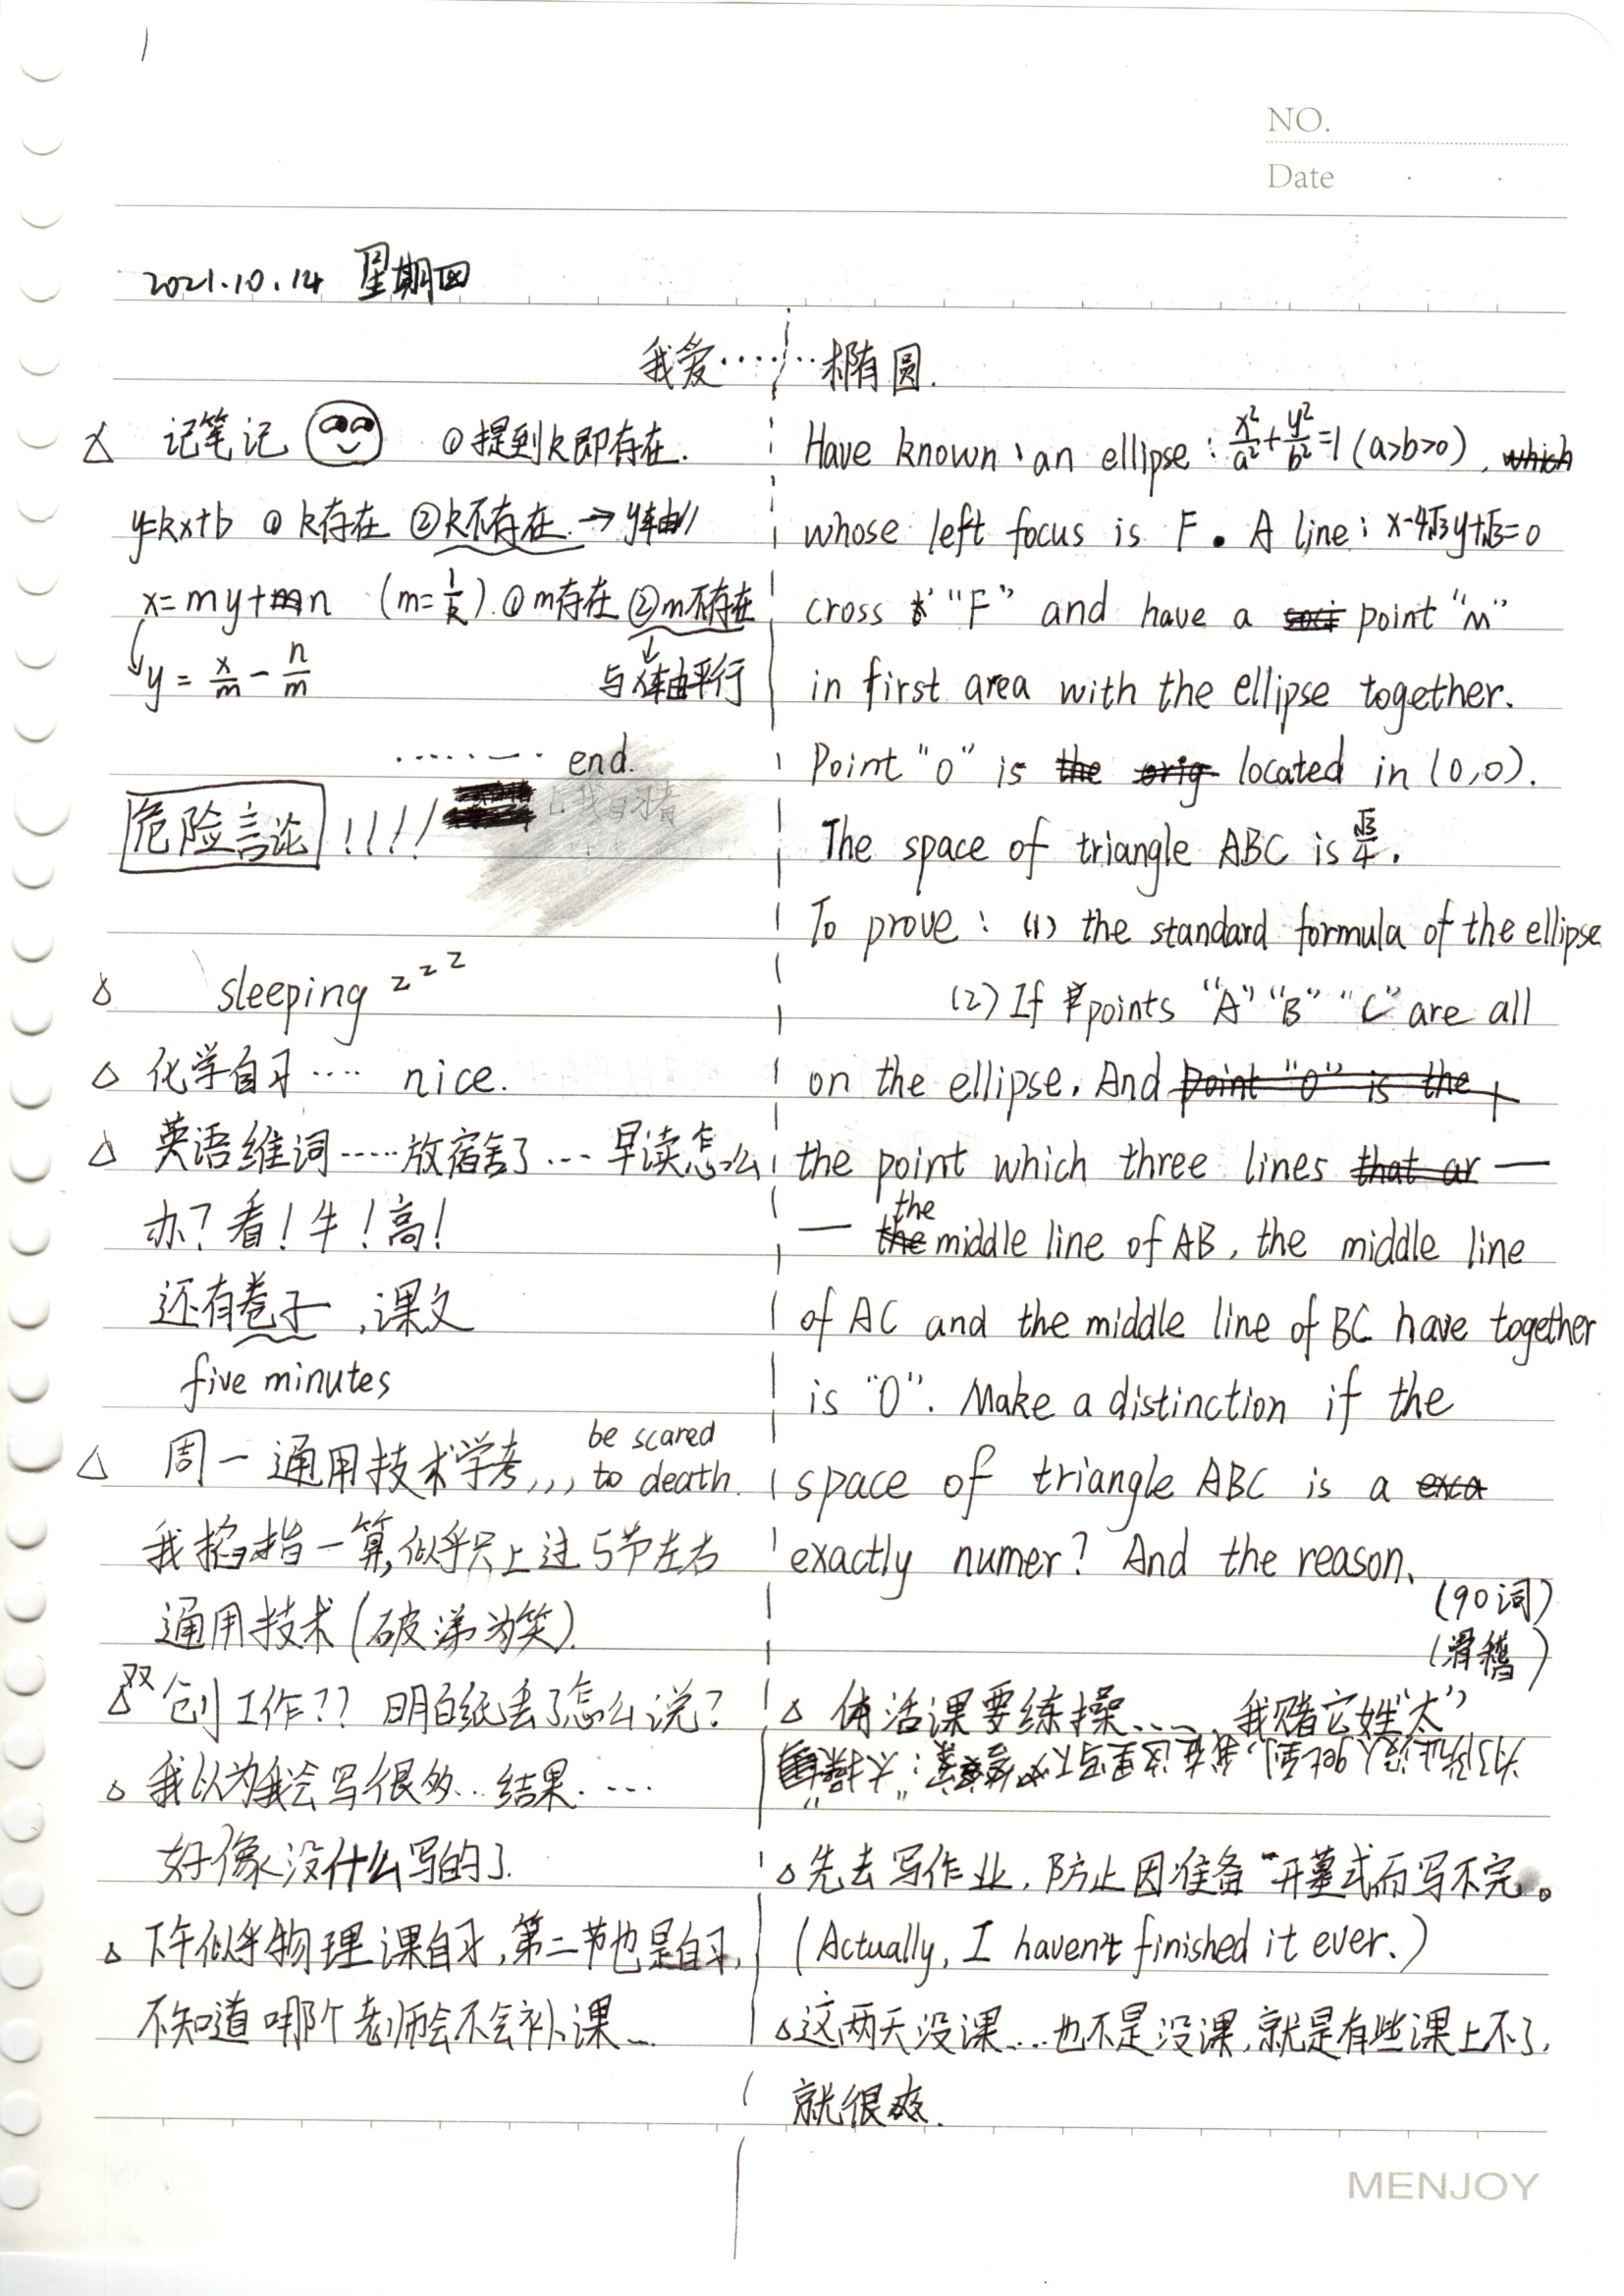 1
NO.
Date
2021.10.14 星期四
我爱……椭圆.
△ 记笔记 ①提到k即存在.
y=kx+b ①k存在 ②k不存在→y轴//
x=my+n (m=1/k).①m存在②m不存在
y=x/m-n/m 与x轴平行
……… end.
危险言论!!!!
△ sleeping zzz
△ 化学自习…. nice.
△ 英语维词……放宿舍了…早读怎么
办?看!牛!高!
还有卷子,课文
five minutes
be scared
△ 周一通用技术学考,,, to death.
我掐指一算,似乎只上过5节左右
通用技术(破涕为笑).
△双创工作??明白纸丢了怎么说?
△ 我以为我会写很多…结果.….
好像没什么写的了.
△ 下午似乎物理课自习,第二节也是自习,
不知道哪个老师会不会补课…
Have known: an ellipse: x²/a²+y²/b²=1 (a>b>0),
whose left focus is F. A line: x-4√3y+√3=0
cross "F" and have a point "M"
in first area with the ellipse together.
Point "O" is located in (0,0).
The space of triangle ABC is √3/4.
To prove: (1) the standard formula of the ellipse
(2) If points "A" "B" "C" are all
on the ellipse. And
the point which three lines —
— the middle line of AB, the middle line
of AC and the middle line of BC have together
is "O". Make a distinction if the
space of triangle ABC is a
exactly numer? And the reason.
(90词)
(滑稽)
△ 体活课要练操….,我赌它姓"太"
为了防止没人get到,我在这里写下:"太操
△先去写作业,防止因准备开幕式而写不完。
(Actually, I haven't finished it ever.)
△这两天没课…也不是没课,就是有些课上不了,
就很爽.
MENJOY